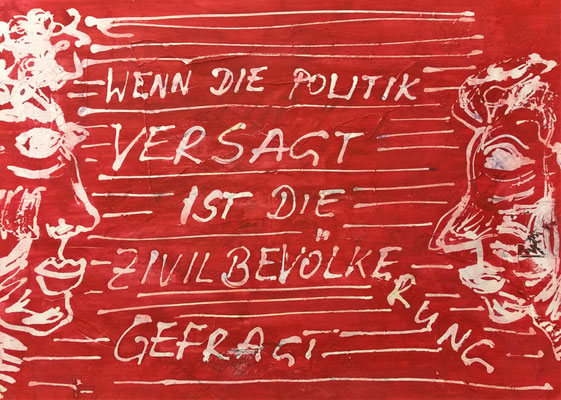 WENN DIE POLITIK
VERSAGT
IST DIE
ZIVILBEVÖLKERUNG
GEFRAGT